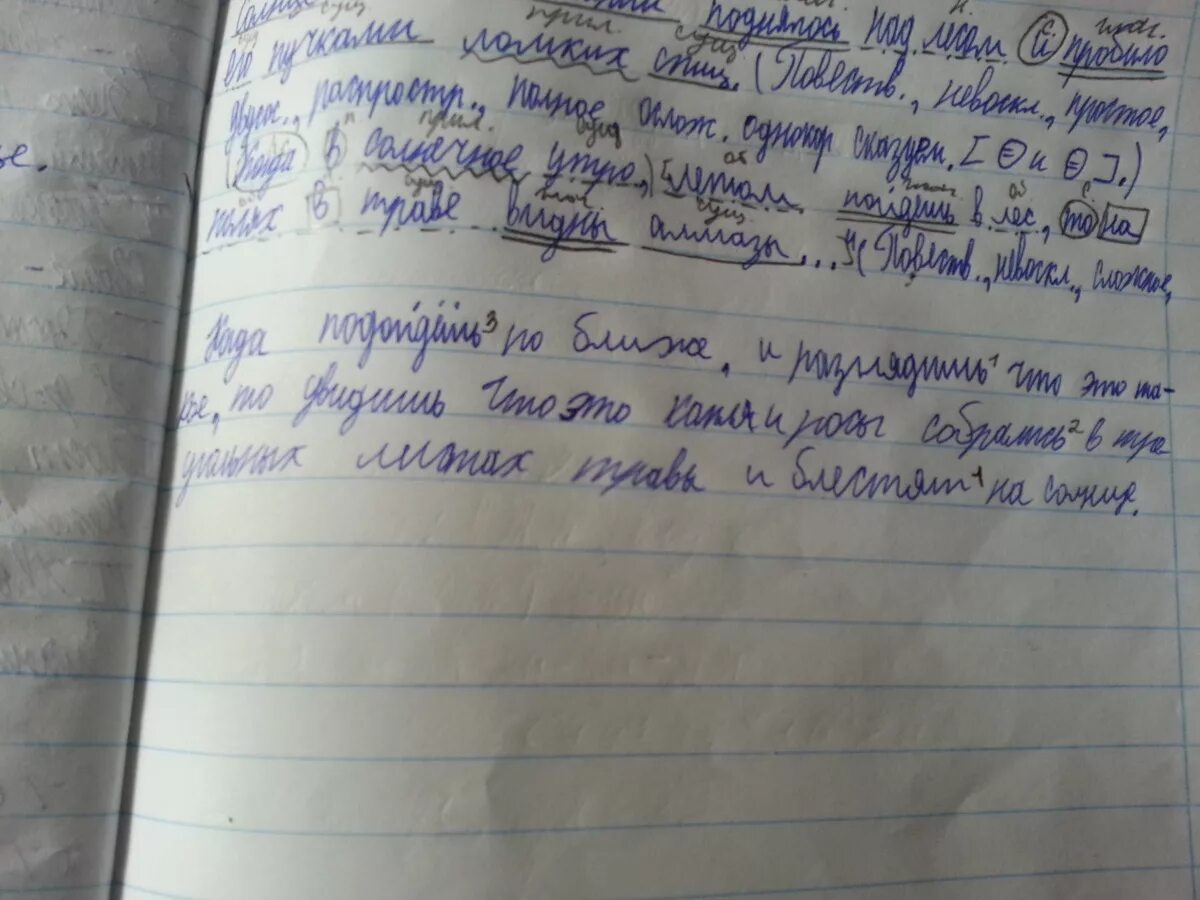 Солнце поднялось над лесом и пробило
его пучками ломких спиц. (Повеств., невоскл., простое,
двусост., распростр., полное, ослож. однокор сказуем. [ и ].)
(Когда в солнечное утро,) [летом пойдёшь в лес, то на
полях в траве видны алмазы...] (Повеств., невоскл., сложное,
Када подойдёшь³ по ближе, и разглядишь¹ что это та-
кое, то увидишь что это капли росы собрались² в тре
угольных листах травы и блестят¹ на солнце.